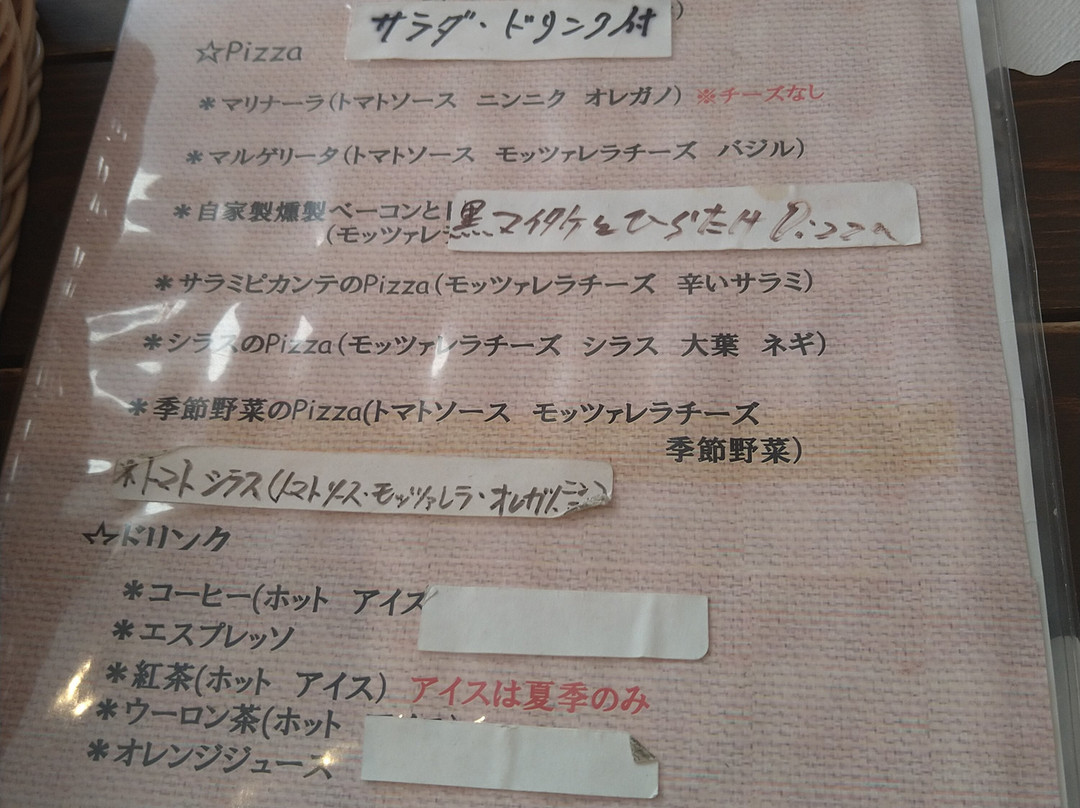 サラダ・ドリンク付
☆Pizza
＊マリナーラ(トマトソース ニンニク オレガノ) ※チーズなし
＊マルゲリータ(トマトソース モッツァレラチーズ バジル)
＊自家製燻製ベーコンと 黒マイタケとひらたけPizza
(モッツァレ
＊サラミピカンテのPizza(モッツァレラチーズ 辛いサラミ)
＊シラスのPizza(モッツァレラチーズ シラス 大葉 ネギ)
＊季節野菜のPizza(トマトソース モッツァレラチーズ
季節野菜)
＊トマトシラス(トマトソース・モッツァレラ・オレガノ
☆ドリンク
＊コーヒー(ホット アイス
＊エスプレッソ
＊紅茶(ホット アイス) アイスは夏季のみ
＊ウーロン茶(ホット
＊オレンジジュース